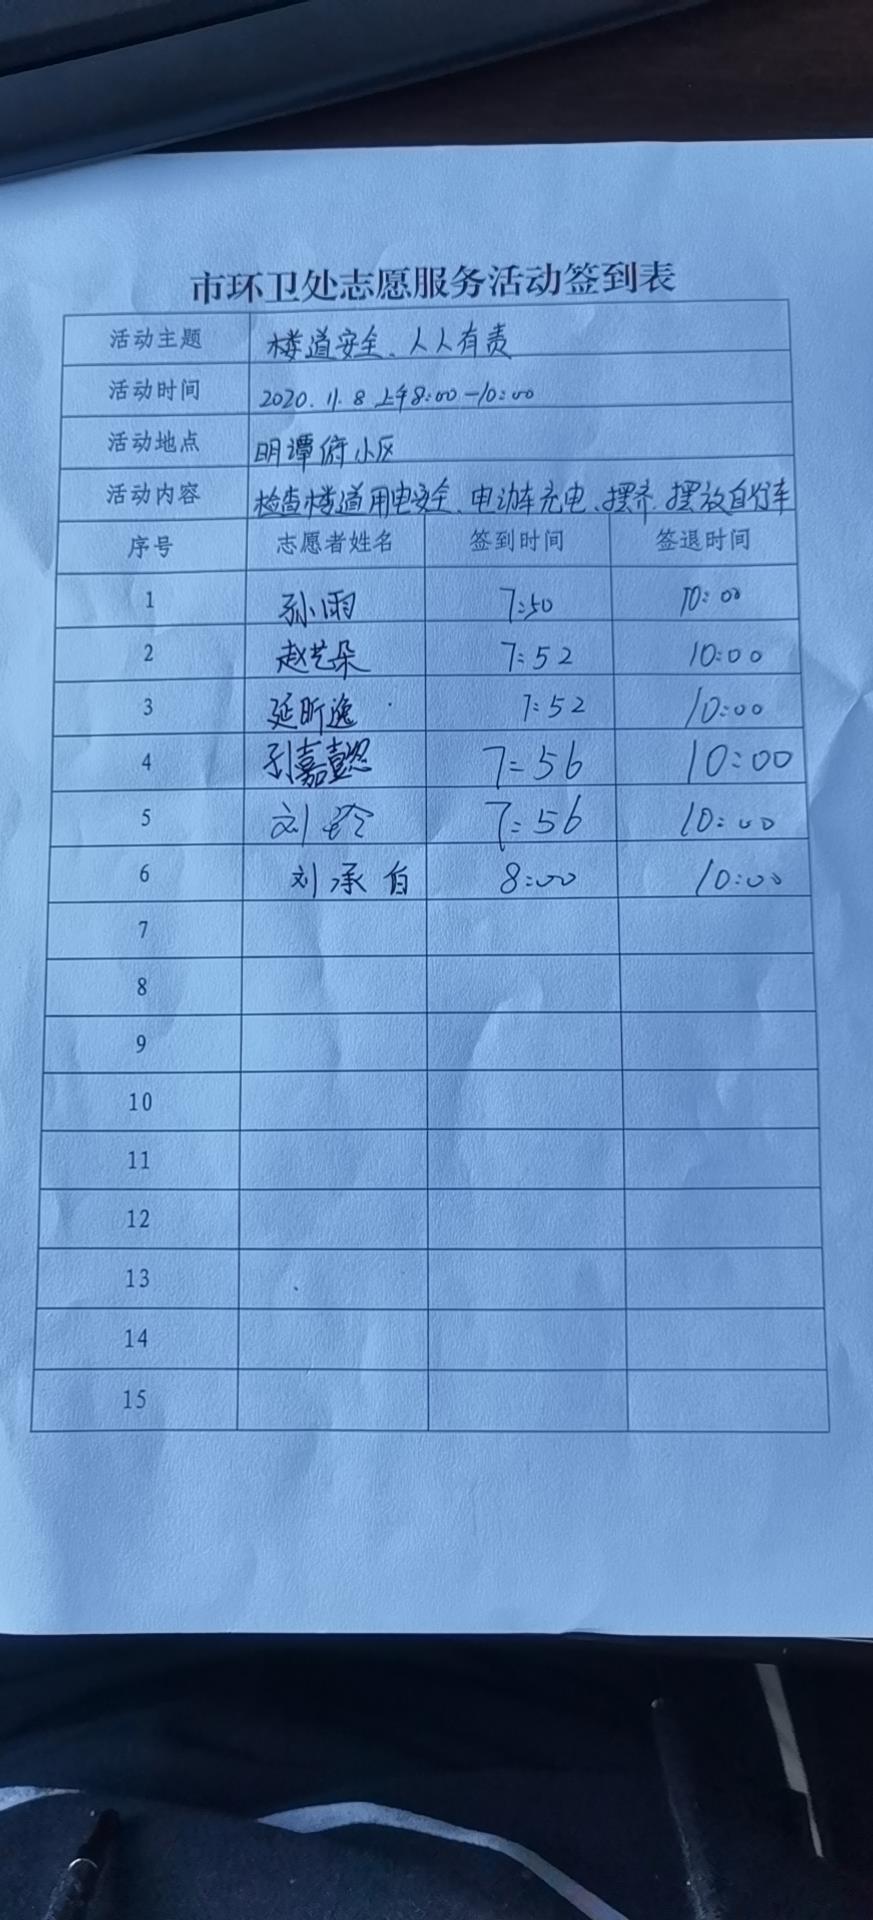 市环卫处志愿服务活动签到表
活动主题 楼道安全、人人有责
活动时间 2020.11.8 上午8:00-10:00
活动地点 明谭府小区
活动内容 检查楼道用电安全、电动车充电、摆齐.摆放自行车
序号 志愿者姓名 签到时间 签退时间
1 孙雨 7:50 10:00
2 赵艺朵 7:52 10:00
3 延昕逸 7:52 10:00
4 嘉懿 7:56 10:00
5 刘玲 7:56 10:00
6 刘承 8:00 10:00
7
8
9
10
11
12
13
14
15